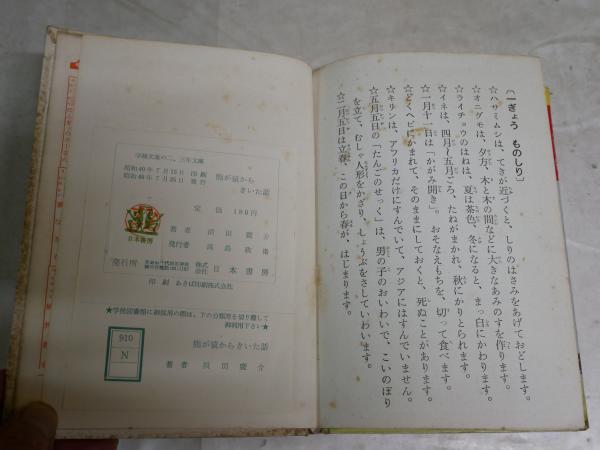 〔一ぎょう ものしり〕
☆ハサミムシは、てきが近づくと、しりのはさみをあげておどします。
☆オニグモは、夕方、木と木の間などに大きなあみのすを作ります。
☆ライチョウのはねは、夏は茶色、冬になると、まっ白にかわります。
☆イネは、四月〜五月ごろ、たねがまかれ、秋にかりとられます。
☆一月十一日は「かがみ開き」。おそなえもちを、切って食べます。
☆どくヘビにかまれて、そのままにしておくと、死ぬことがあります。
☆キリンは、アフリカだけにすんでいて、アジアにはすんでいません。
☆五月五日の「たんごのせっく」は、男の子のおいわいで、こいのぼり
を立て、むしゃ人形をかざり、しょうぶをさしていわいます。
☆二月五日は立春、この日から春が、はじまります。
学級文庫の二、三年文庫
昭和40年7月15日 印刷
昭和40年7月25日 発行
熊が猿から
きいた話
定価 180円
著者 浜田廣介
発行者
日本書房
発行所
株式会社 日本書房
印刷 あさひ印刷株式会社
★学校図書館に御採用の際は、下の分類票を切り離して
御利用下さい★
910
N
熊が猿からきいた話
著者 浜田廣介